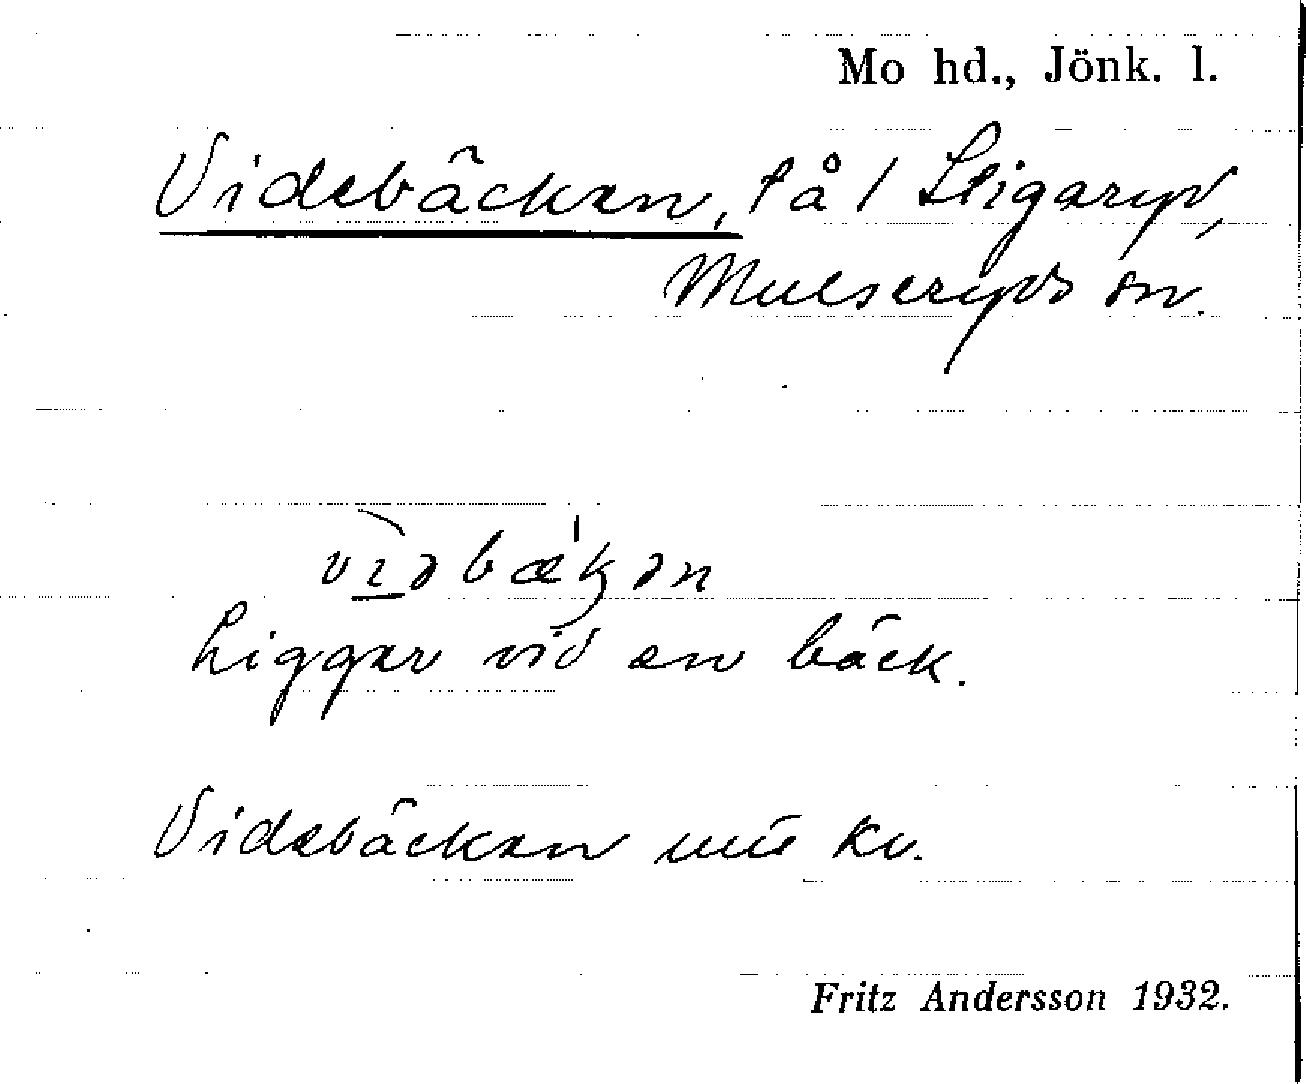 Mo hd., Jönk. l.
Videbäcken, på / Stigaryd,
Mulseryds sn.
Ligger vid en bäck.
Videbäcken
Fritz Andersson 1932.